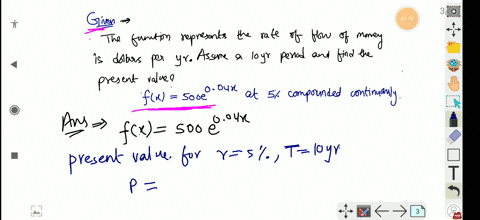 Given →
The function represents the rate of flow of money
is dollars per yr. Assume a 10yr period and find the
present value?
f(x) = 500e^0.04x at 5% compounded continuously.
Ans ⇒ f(x) = 500 e^0.04x
present value for r = 5%, T = 10yr
P =
3